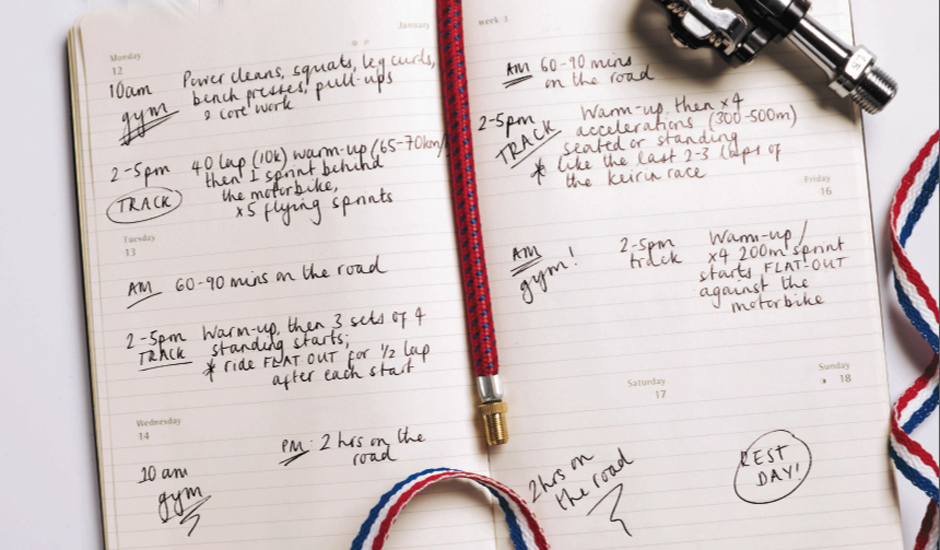 January
Monday
12
10am
gym
Power cleans, squats, leg curls,
bench presses, pull-ups
& core work
2-5pm
TRACK
40 lap (10k) warm-up (65-70km/
then 1 sprint behind
the motorbike,
x5 flying sprints
Tuesday
13
AM 60-90 mins on the road
2-5pm
TRACK
Warm-up, then 3 sets of 4
standing starts;
* ride FLAT OUT for 1/2 lap
after each start
Wednesday
14
10am
gym
PM: 2 hrs on the
road
week 3
AM 60-90 mins
on the road
2-5pm
TRACK
Warm-up, then x4
accelerations (300-500m)
seated or standing
* like the last 2-3 laps of
the keirin race
Friday
16
AM
gym!
2-5pm
track
Warm-up/
x4 200m sprint
starts FLAT-OUT
against the
motorbike
Saturday
17
2hrs on
the road
Sunday
18
REST
DAY!